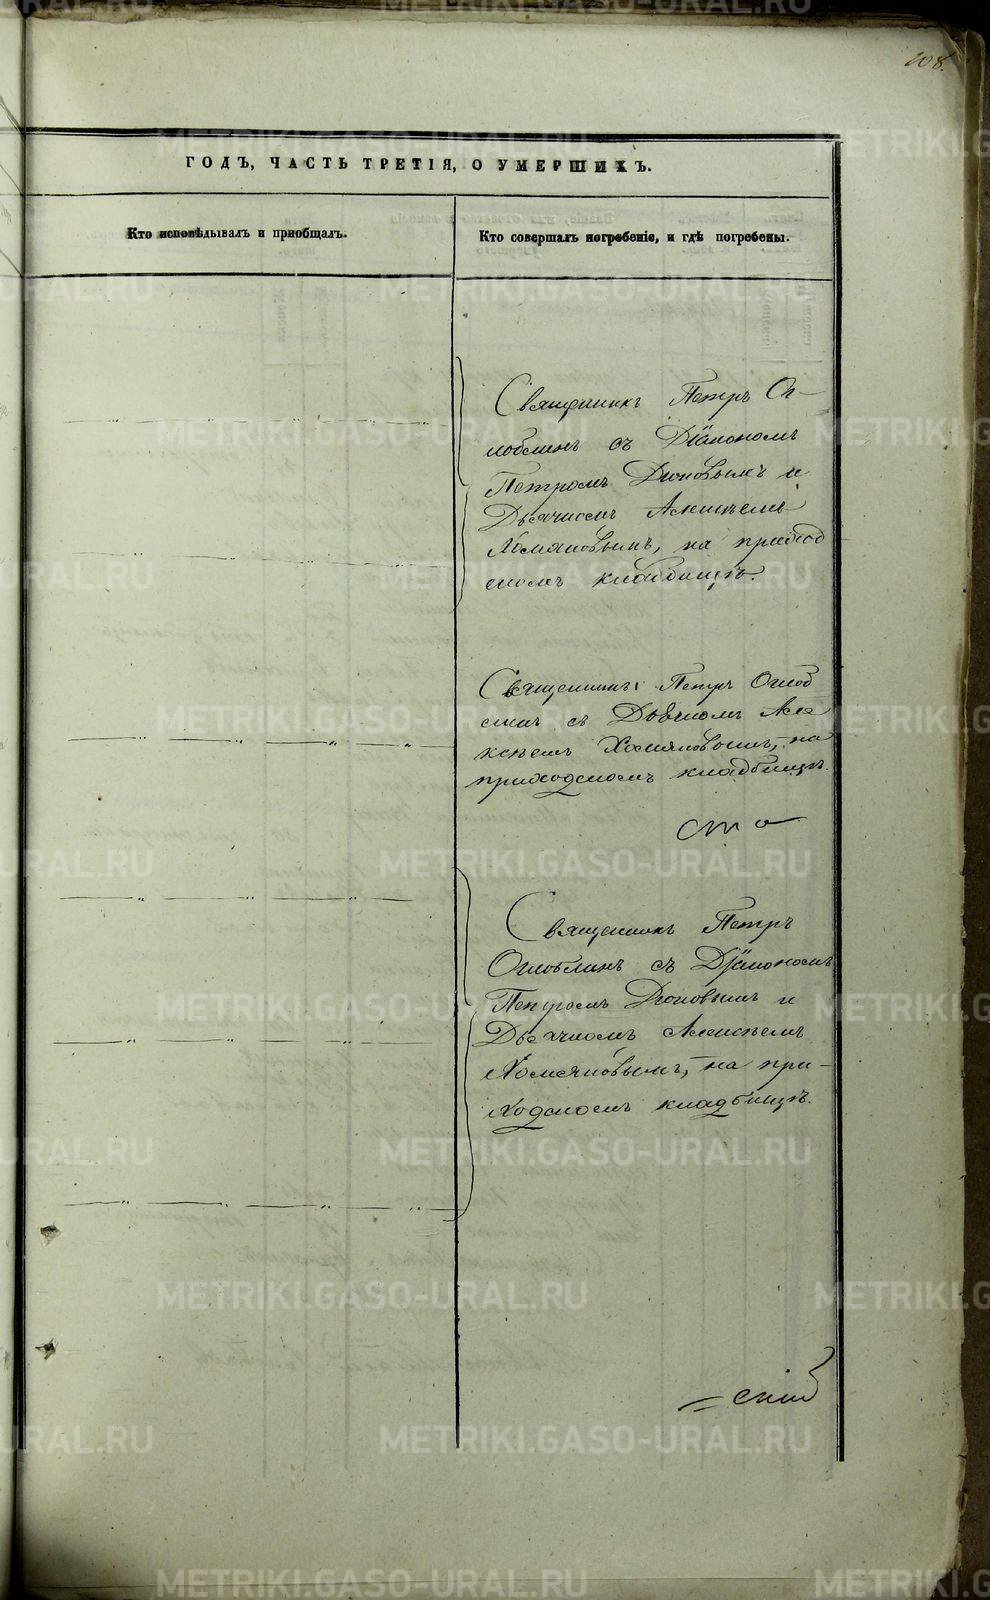 108.
ГОДЪ, ЧАСТЬ ТРЕТІЯ, О УМЕРШИХЪ.
Кто исповѣдывалъ и пріобщалъ.
Кто совершалъ погребеніе, и гдѣ погребены.
Священникъ Петръ Ог-
лоблинъ съ Діакономъ
Петромъ Діоновымъ и
Дьячкомъ Алексѣемъ
Хомяковымъ, на приход
скомъ кладбищѣ.
Священникъ Петръ Оглоб
линъ съ Дьячкомъ Але
ксѣемъ Хомяковымъ, на
приходскомъ кладбищѣ.
сто
Священникъ Петръ
Оглоблинъ съ Діакономъ
Петромъ Діоновымъ и
Дьячкомъ Алексѣемъ
Хомяковымъ, на при-
ходскомъ кладбищѣ.
METRIKI.GASO-URAL.RU